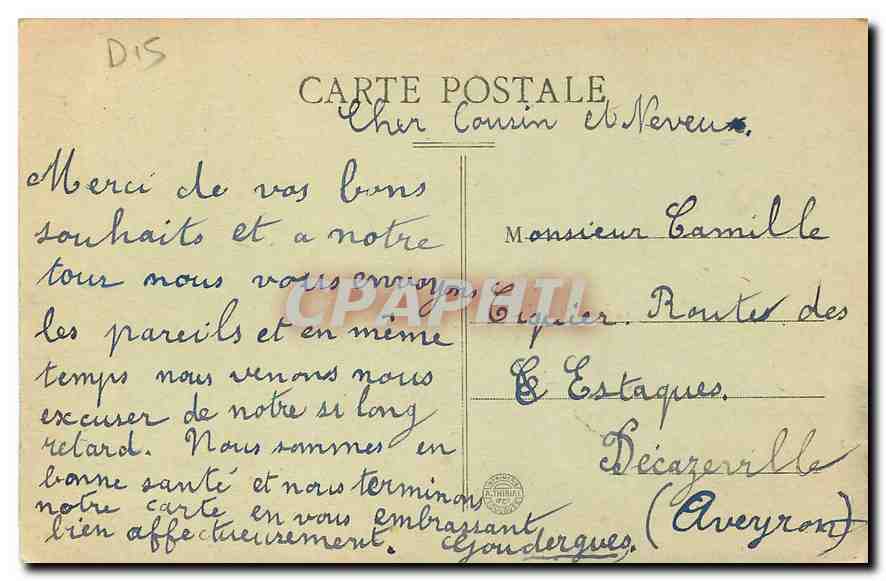 D15
CARTE POSTALE
Cher Cousin et Neveux.
Merci de vos bons
souhaits et a notre
tour nous vous envoyons
les pareils et en même
temps nous venons nous
excuser de notre si long
retard. Nous sommes en
bonne santé et nous terminons
notre carte en vous embrassant
bien affectueusement. Goudergues.
Monsieur Camille
Routes des
Estaques.
Décazeville
(Aveyron)
CPAPHIL